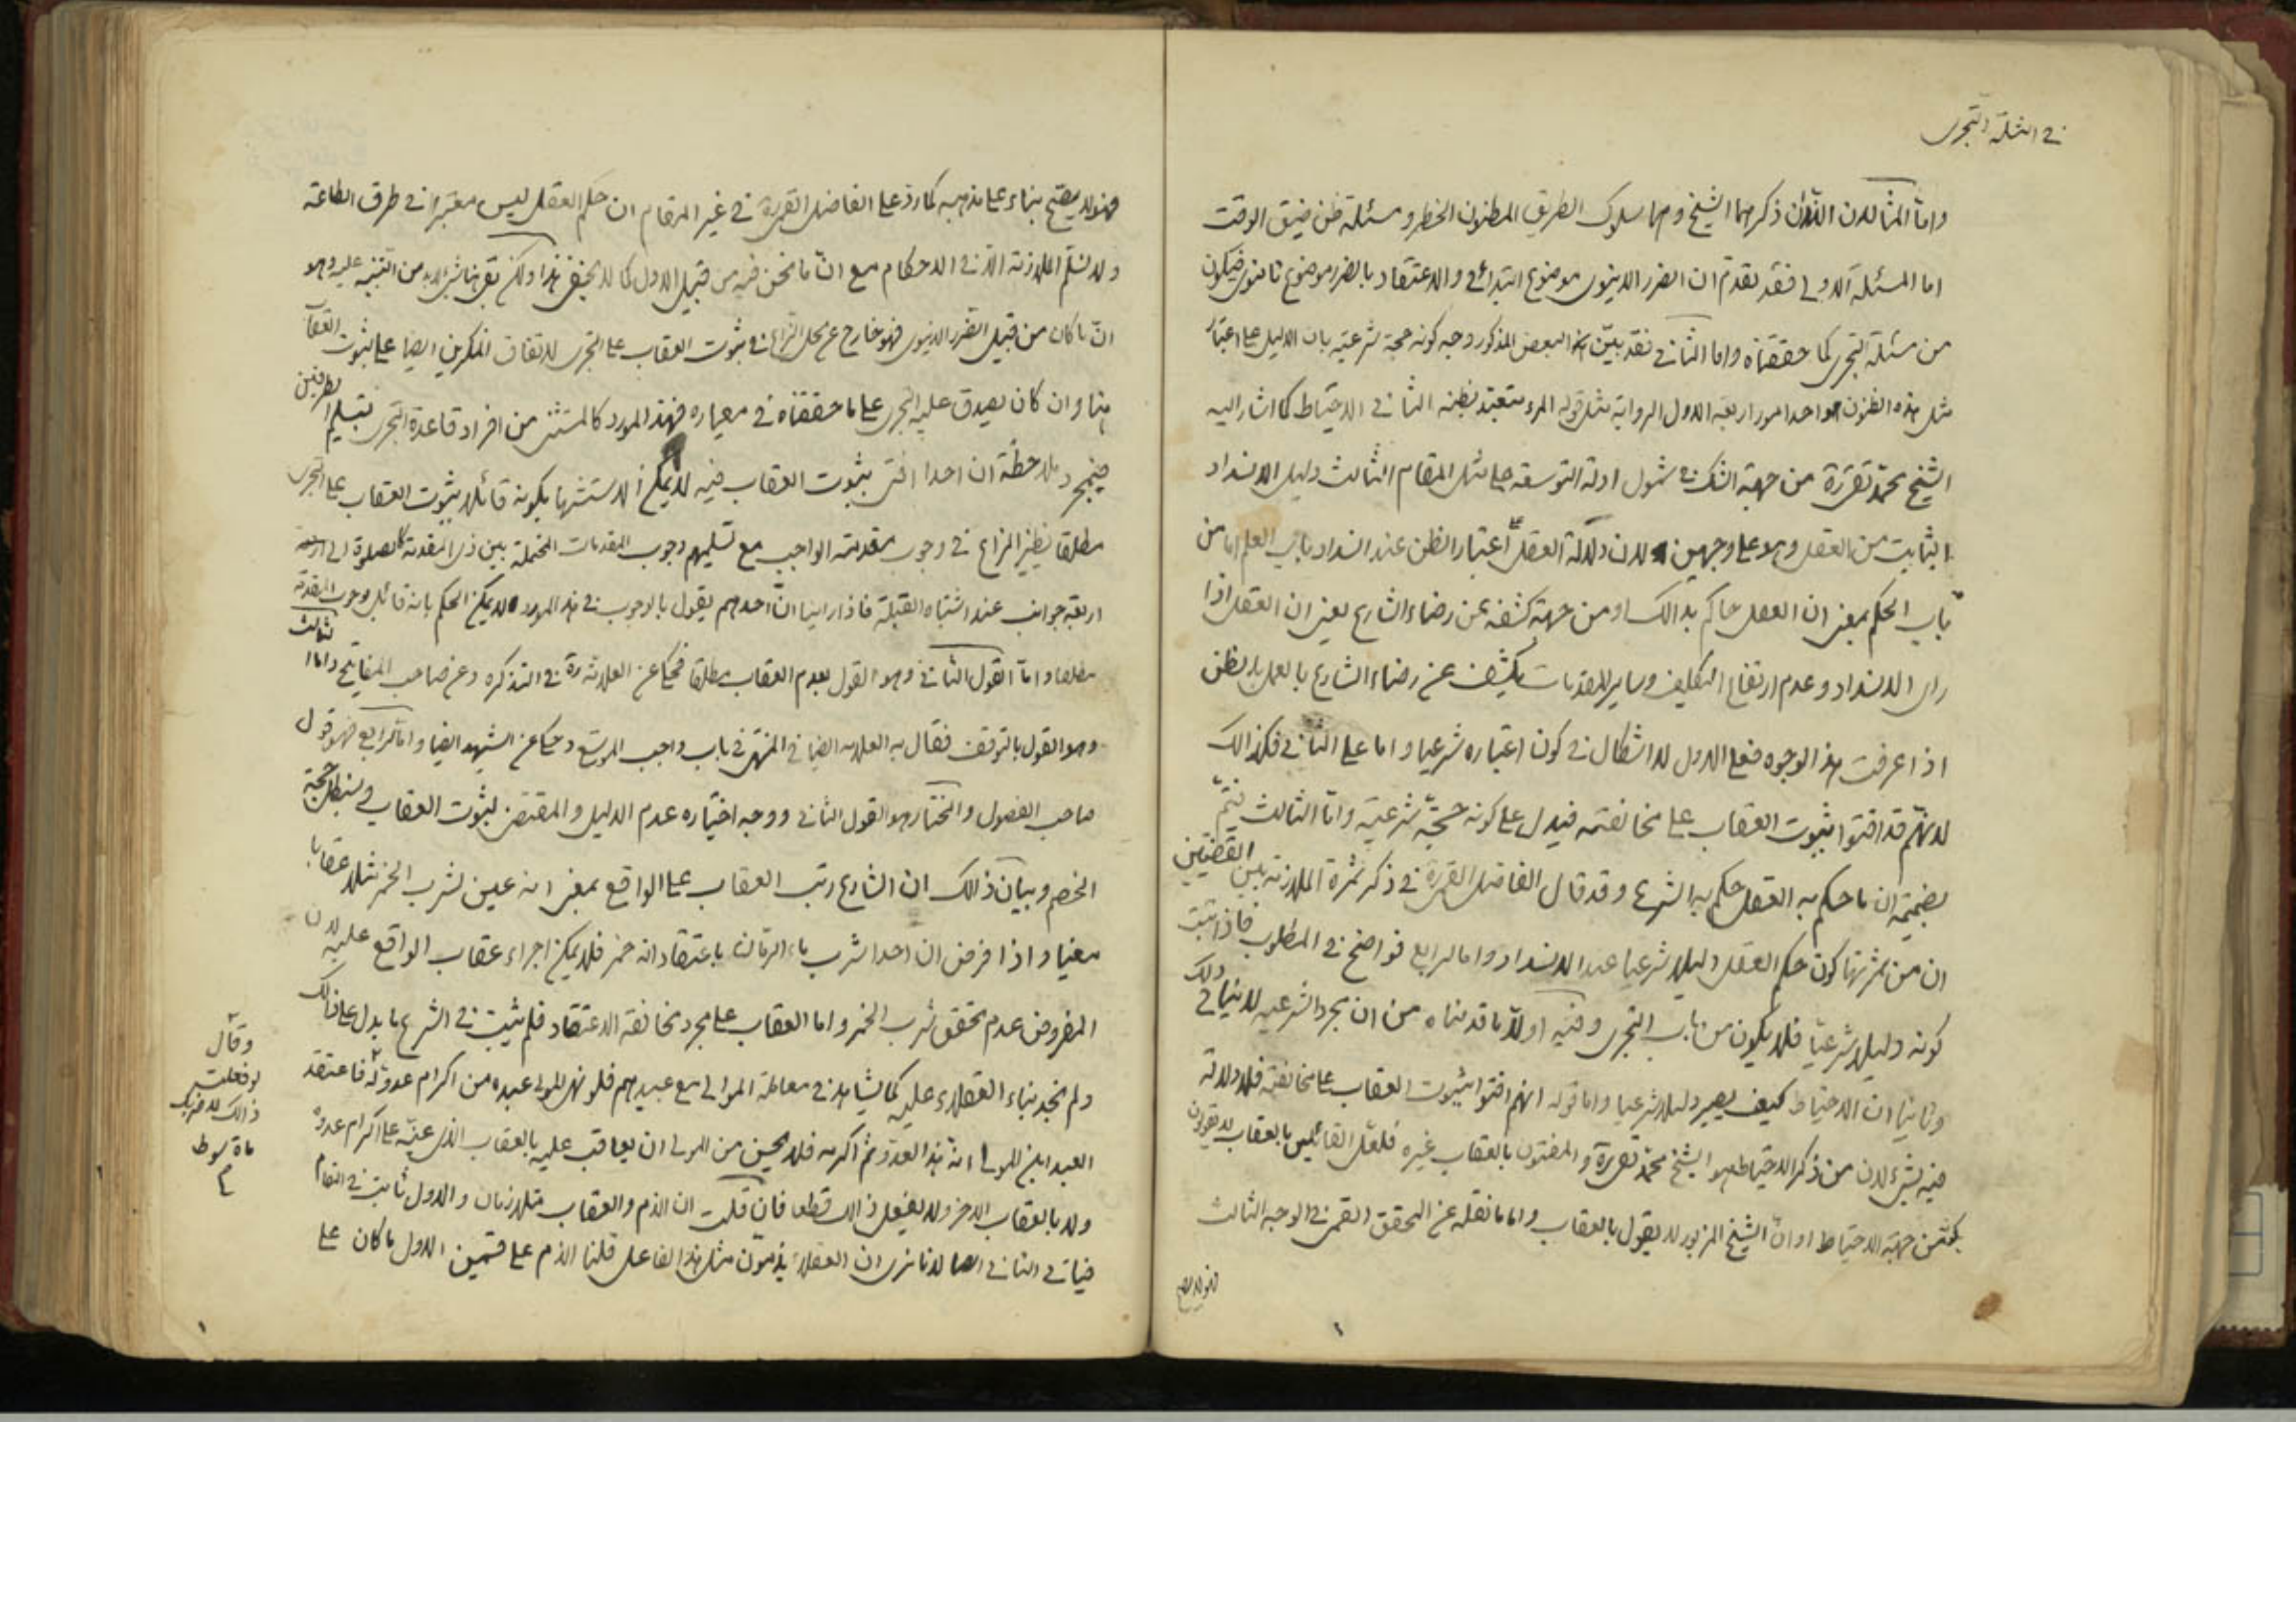 في امثلة التجري
واما المثالان اللذان ذكرهما الشيخ وهما سلوك الطريق المظنون الخطر ومسئلة ظن ضيق الوقت
اما المسئلة الاولى فقد تقدم ان الضرر الدنيوى موضوع ابتدائى والاعتقاد بالضرر موضوع ثانوى فيكون
من مسئلة التجرى كما حققناه واما الثانى فقد بيّن البعض المذكور وجه كونه حجة شرعية بان الدليل على اعتبار
مثل هذه الظنون احد امور اربعة الاول الرواية مثل قوله المرء متعبد بظنه الثانى الاحتياط كما اشار اليه
الشيخ محمد تقى ره من جهة الشك فى شمول ادلة التوسعة على مثل المقام الثالث دليل الانسداد
الثابت من العقل وهو على وجهين لان دلالة العقل على اعتبار الظن عند انسداد باب العلم اما من
باب الحكم بمعنى ان العقل حاكم بذالك او من جهة كشفه عن رضاء الشارع بمعنى ان العقل اذا
راى الانسداد وعدم ارتفاع التكليف وساير المقدمات يكشف عن رضاء الشارع بالعمل بالظن
اذا عرفت هذا الوجوه فعلى الاول لا اشكال فى كون اعتباره شرعيا واما على الثانى فكذالك
لانهم قد افتوا بثبوت العقاب على مخالفته فيدل على كونه حجة شرعية واما الثالث فيتم
بضميمة ان ما حكم به العقل حكم به الشرع وقد قال الفاضل القمى ره فى ذكر ثمرة الملازمة بين القضيتين
ان من ثمرتها كون حكم العقل دليلا شرعيا عند الانسداد واما الرابع فواضح فى المطلوب فاذا ثبت
كونه دليلا شرعيا فلا يكون من باب التجرى وفيه اولا ما قدمناه من ان مجرد الشرعية لا ينافى ذلك
وثانيا ان الاحتياط كيف يصير دليلا شرعيا واما قوله انهم افتوا بثبوت العقاب على مخالفته فلا دلالة
فيه بشىء لان من ذكر الاحتياط هو الشيخ محمد تقى ره والمفتون بالعقاب غيره فلعل القائلين بالعقاب لا يقولون
من جهة الاحتياط او ان الشيخ المزبور لا يقول بالعقاب واما ما نقله عن المحقق القمى فى الوجه الثالث
فهو لا يصح
فهو لا يصح بناء على مذهبه كما رد على الفاضل القمى ره فى غير المقام ان حكم العقل ليس معتبرا فى طرق الطاعة
ولا نسلم الملازمة الا فى الاحكام مع ان ما نحن فيه من قبيل الاول كما لا يخفى هذا ولكن بقى هنا شىء لا بد من التنبيه عليه وهو
ان ما كان من قبيل الضرر الدنيوى فهو خارج عن محل النزاع فى ثبوت العقاب على التجرى لاتفاق المنكرين ايضا على ثبوت العقاب
هنا وان كان يصدق عليه التجرى على ما حققناه فى معياره فهذا المورد كالمستثنى من افراد قاعدة التجرى بتسليم الطرفين
فبمجرد ملاحظة ان احدا افتى بثبوت العقاب فيه لا يمكن الاستشهاد بكونه قائلا بثبوت العقاب على التجرى
مطلقا نظير النزاع فى وجوب مقدمة الواجب مع تسليمهم وجوب المقدمات المحتملة بين ذى المقدمة كالصلوة الى
اربعة جوانب عند اشتباه القبلة فاذا راينا ان احدهم يقول بالوجوب فى هذا المورد لا يمكن الحكم بانه قائل بوجوب المقدمة
مطلقا واما القول الثانى وهو القول بعدم العقاب مطلقا فحكى عن العلامة ره فى التذكره وعن صاحب المفاتيح واما الثالث
وهو القول بالتوقف فقال به العلامه ايضا فى المنتهى فى باب واجب الموسع وحكى عن الشهيد ايضا واما الرابع فهو قول
صاحب الفصول والمختار هو القول الثانى ووجه اختياره عدم الدليل والمقتضى لثبوت العقاب وسنبطل حجة
الخصم وبيان ذالك ان الشارع رتب العقاب على الواقع بمعنى انه عين لشرب الخمر مثلا عقابا
معينا واذا فرض ان احدا شرب ماء الرمان باعتقاد انه خمر فلا يمكن اجراء عقاب الواقع عليه لان
المفروض عدم تحقق شرب الخمر واما العقاب على مجرد مخالفة الاعتقاد فلم يثبت فى الشرع ما يدل على ذالك
ولم نجد بناء العقلاء عليه كما يشاهد فى معاملة الموالى مع عبيدهم فلو نهى المولى عبده من اكرام عدو له فاعتقد
العبد ابن المولى انه هذا العدو ثم اكرمه فلا يحسن من المولى ان يعاقب عليه بالعقاب الذى عينه على اكرام عدوه
ولا بالعقاب الاخر ولا يفعل ذالك قطعا فان قلت ان الذم والعقاب متلازمان والاول ثابت فى المقام
فيأتى الثانى ايضا لانا نرى ان العقلاء يذمون مثل هذا الفاعل قلنا الذم على قسمين الاول ما كان على
وقال
لو فعلت
ذالك لاضربك
ماة سوط